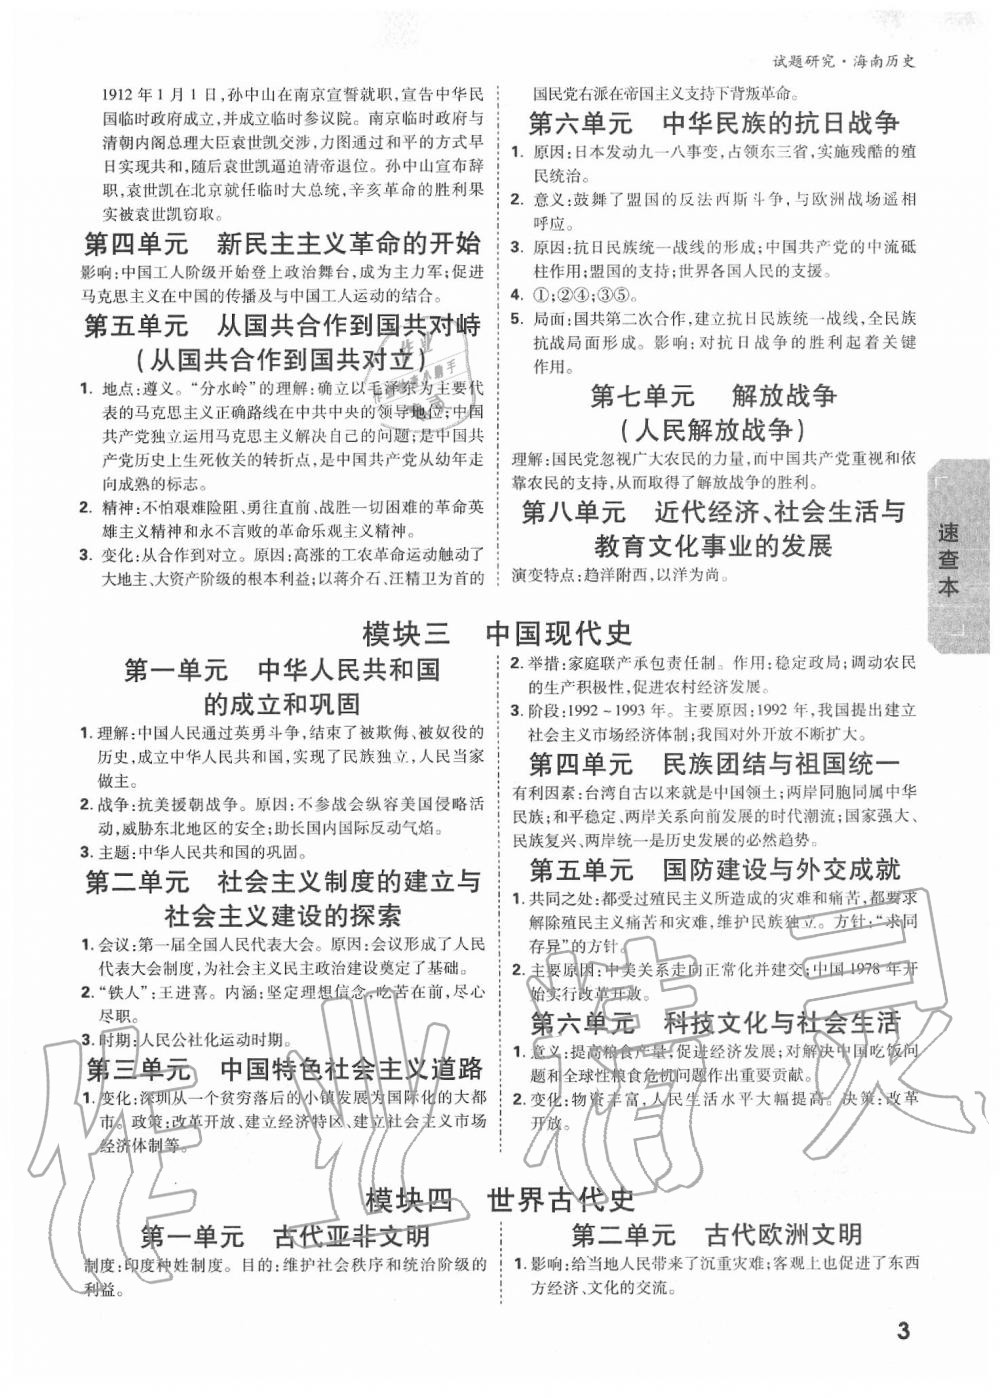 试题研究·海南历史
1912年1月1日,孙中山在南京宣誓就职,宣告中华民
国临时政府成立,并成立临时参议院。南京临时政府与
清朝内阁总理大臣袁世凯交涉,力图通过和平的方式早
日实现共和,随后袁世凯逼迫清帝退位。孙中山宣布辞
职,袁世凯在北京就任临时大总统,辛亥革命的胜利果
实被袁世凯窃取。
第四单元 新民主主义革命的开始
影响:中国工人阶级开始登上政治舞台,成为主力军;促进
马克思主义在中国的传播及与中国工人运动的结合。
第五单元 从国共合作到国共对峙
(从国共合作到国共对立)
1. 地点:遵义。“分水岭”的理解:确立以毛泽东为主要代
表的马克思主义正确路线在中共中央的领导地位;中国
共产党独立运用马克思主义解决自己的问题;是中国共
产党历史上生死攸关的转折点,是中国共产党从幼年走
向成熟的标志。
2. 精神:不怕艰难险阻、勇往直前、战胜一切困难的革命英
雄主义精神和永不言败的革命乐观主义精神。
3. 变化:从合作到对立。原因:高涨的工农革命运动触动了
大地主、大资产阶级的根本利益;以蒋介石、汪精卫为首的
国民党右派在帝国主义支持下背叛革命。
第六单元 中华民族的抗日战争
1. 原因:日本发动九一八事变,占领东三省,实施残酷的殖
民统治。
2. 意义:鼓舞了盟国的反法西斯斗争,与欧洲战场遥相
呼应。
3. 原因:抗日民族统一战线的形成;中国共产党的中流砥
柱作用;盟国的支持;世界各国人民的支援。
4. ①;②④;③⑤。
5. 局面:国共第二次合作,建立抗日民族统一战线,全民族
抗战局面形成。影响:对抗日战争的胜利起着关键
作用。
第七单元 解放战争
(人民解放战争)
理解:国民党忽视广大农民的力量,而中国共产党重视和依
靠农民的支持,从而取得了解放战争的胜利。
第八单元 近代经济、社会生活与
教育文化事业的发展
演变特点:趋洋附西,以洋为尚。
速查本
模块三 中国现代史
第一单元 中华人民共和国
的成立和巩固
1. 理解:中国人民通过英勇斗争,结束了被欺侮、被奴役的
历史,成立中华人民共和国,实现民族独立,人民当家
做主。
2. 战争:抗美援朝战争。原因:不参战会纵容美国侵略活
动,威胁东北地区的安全;助长国内国际反动气焰。
3. 主题:中华人民共和国的巩固。
第二单元 社会主义制度的建立与
社会主义建设的探索
1. 会议:第一届全国人民代表大会。原因:会议形成了人民
代表大会制度,为社会主义民主政治建设奠定了基础。
2. “铁人”:王进喜。内涵:坚定理想信念,吃苦在前,尽心
尽职。
3. 时期:人民公社化运动时期。
第三单元 中国特色社会主义道路
1. 变化:深圳从一个贫穷落后的小镇发展为国际化的大都
市。政策:改革开放、建立经济特区、建立社会主义市场
经济体制等。
2. 举措:家庭联产承包责任制。作用:稳定政局;调动农民
的生产积极性,促进农村经济发展。
3. 阶段:1992~1993年。主要原因:1992年,我国提出建立
社会主义市场经济体制;我国对外开放不断扩大。
第四单元 民族团结与祖国统一
有利因素:台湾自古以来就是中国领土;两岸同胞同属中华
民族;和平稳定、两岸关系向前发展的时代潮流;国家强大、
民族复兴、两岸统一是历史发展的必然趋势。
第五单元 国防建设与外交成就
1. 共同之处:都受过殖民主义所造成的灾难和痛苦,都要求
解除殖民主义痛苦和灾难,维护民族独立。方针:“求同
存异”的方针。
2. 主要原因:中美关系走向正常化并建交;中国1978年开
始实行改革开放。
第六单元 科技文化与社会生活
1. 意义:提高粮食产量,促进经济发展;对解决中国吃饭问
题和全球性粮食危机问题作出重要贡献。
2. 变化:物资丰富,人民生活水平大幅提高。决策:改革
开放。
模块四 世界古代史
第一单元 古代亚非文明
制度:印度种姓制度。目的:维护社会秩序和统治阶级的
利益。
第二单元 古代欧洲文明
1. 影响:给当地人民带来了沉重灾难;客观上也促进了东西
方经济、文化的交流。
3
作业精灵